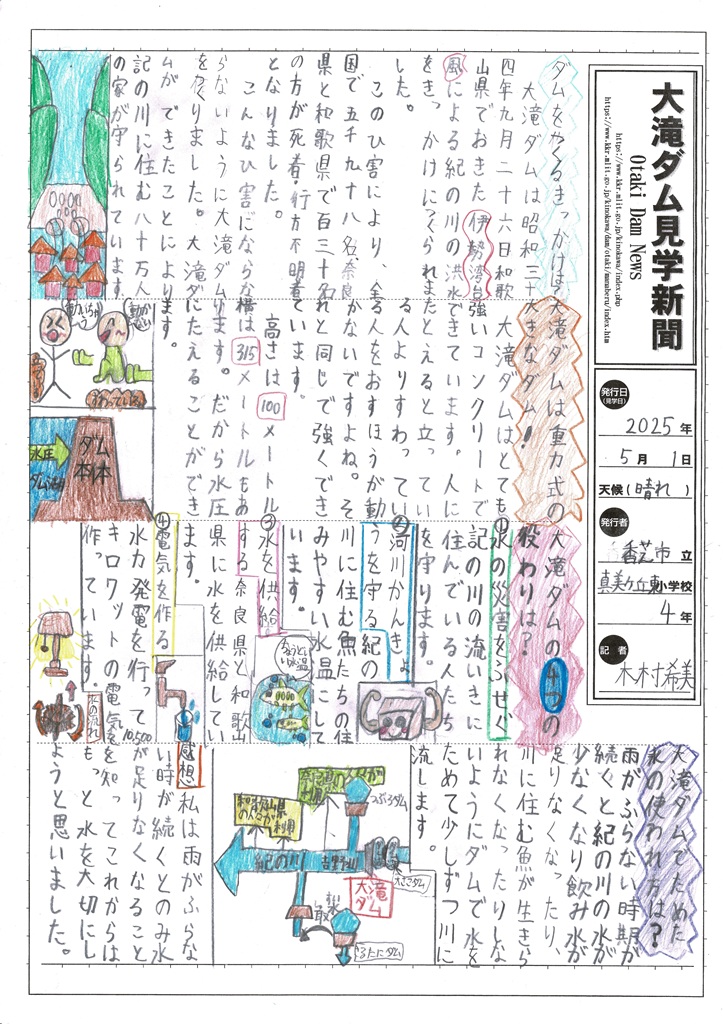 大滝ダム見学新聞
Otaki Dam News
https://www.kkr.mlit.go.jp/kinokawa/index.php
https://www.kkr.mlit.go.jp/kinokawa/dam/otaki/manaberu/index.htm
発行日
(見学日)
2025年
5月1日
天候(晴れ)
発行者
香芝市立
真美ヶ丘東小学校
4年
記者
木村希美
ダムをつくるきっかけは
大滝ダムは昭和三十
四年九月二十六日和歌
山県でおきた伊勢湾台
風による紀の川の洪水
をきっかけにつくられま
した。
このひ害により、全
国で五千九十八名奈良
県と和歌県で百三十名
の方が死者・行方不明者
となりました。
こんなひ害にならな
らないように大滝ダム
をつくりました。大滝ダ
ムができたことにより
記の川に住む八十万人
の家が守られています。
大滝ダムは重力式の
大きなダム!
大滝ダムはとても
強いコンクリートで
できています。人に
たとえると立ってい
る人よりすわってい
る人をおすほうが動
かないですよね。そ
れと同じで強くでき
ています。
高さは100メートル
横は315メートルもあ
ります。だから水圧
にたえることができ
ます。
水圧
ダム
本体
大滝ダムの4つの
役わりは?
①水の災害をふせぐ
記の川の流いきに
住んでいる人たち
を守ります。
②河川かんきょ
うを守る紀の
川に住む魚たちの住
みやすい水温にして
います。
③水を供給
する奈良県と和歌山
県に水を供給してい
ます。
④電気を作る
水力発電を行って10,500
キロワットの電気を
作っています。
ちょうどいい水温
水の流れ
大滝ダムでためた
水の使われ方は?
雨がふらない時期が
続くと紀の川の水が
少なくなり飲み水が
足りなくなったり、
川に住む魚が生きら
れなくなったりしな
いようにダムで水を
ためて少しずつ川に
流します。
奈良県の人たちが利用
和歌山県の人たちが利用
紀の川
吉野川
大滝
ダム
感想私は雨がふらな
い時が続くとのみ水
が足りなくなること
を知ってこれからは
もっと水を大切にし
ようと思いました。